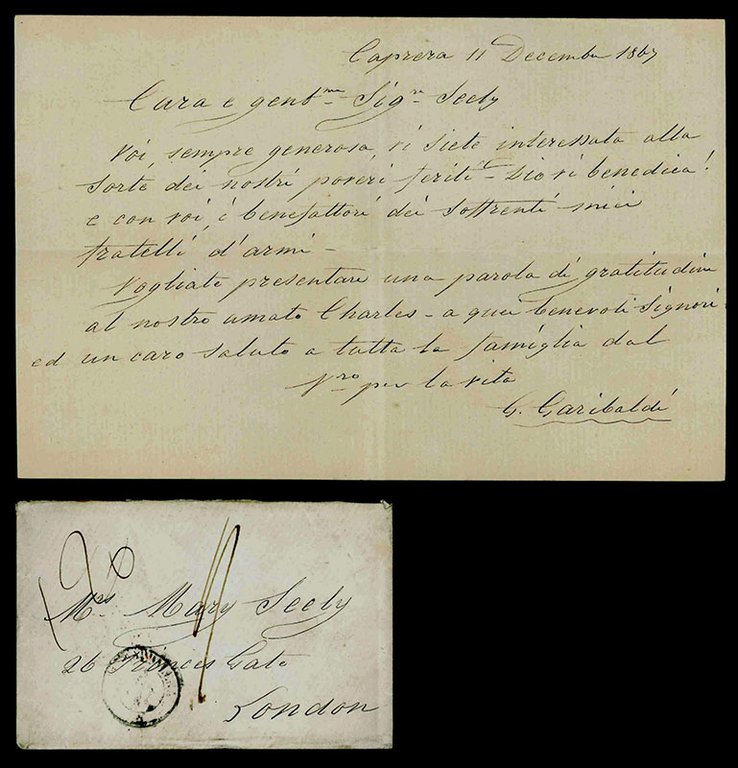 Caprera 11 Decembre 1867
Cara e gent.ma Sig.ra Seely
Voi, sempre generosa, vi siete interessata alla
sorte dei nostri poveri feriti - Dio vi benedica!
e con voi, i benefattori dei soffrenti miei
fratelli d'armi -
Vogliate presentare una parola di gratitudine
al nostro amato Charles - a quei benevoli Signori -
ed un caro saluto a tutta la famiglia dal
V.ro per la vita
G. Garibaldi
Mrs Mary Seely
26 Princes Gate
London